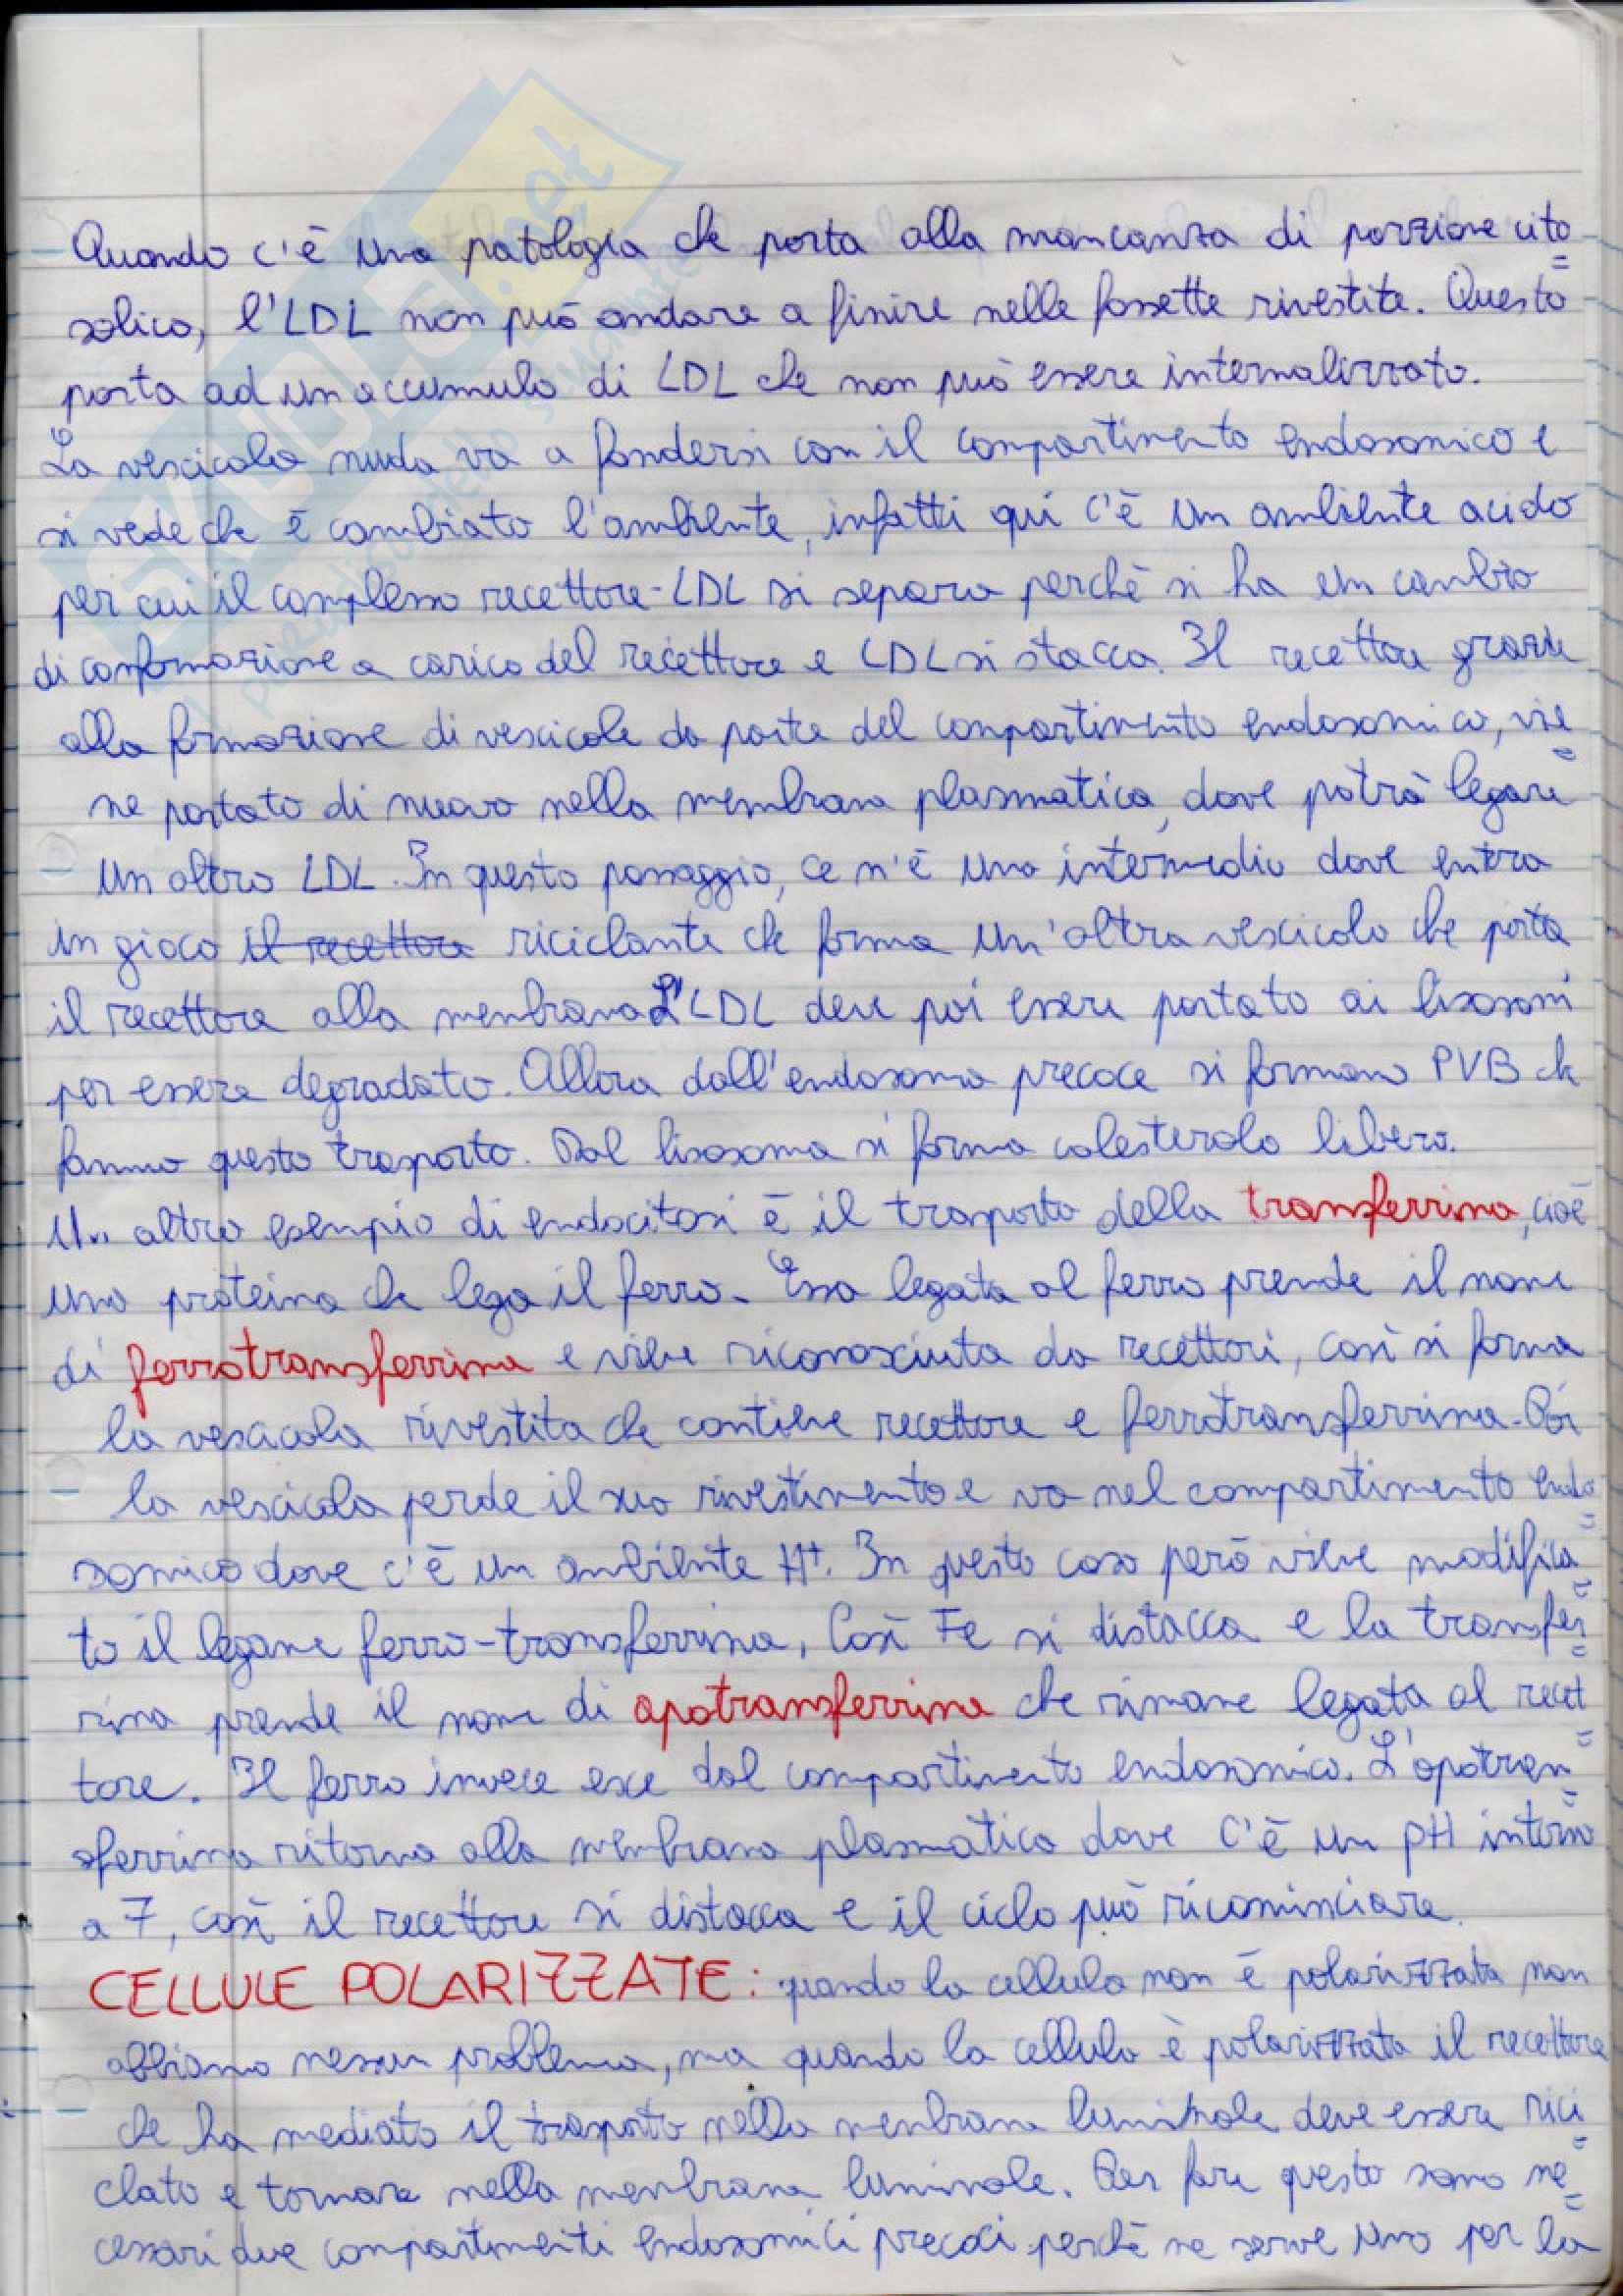 Quando c'è una patologia che porta alla mancanza di porzione cito=
solica, l'LDL non può andare a finire nelle fossette rivestite. Questo
porta ad un accumulo di LDL che non può essere internalizzato.
La vescicola nuda va a fondersi con il compartimento endosomico e
si vede che è cambiato l'ambiente, infatti qui c'è un ambiente acido
per cui il complesso recettore-LDL si separa perchè si ha un cambio
di conformazione a carico del recettore e LDL si stacca. Il recettore grazie
alla formazione di vescicole da parte del compartimento endosomico, vie=
ne portato di nuovo nella membrana plasmatica, dove potrà legare
un altro LDL. In questo passaggio, ce n'è uno intermedio dove entra
in gioco il recettore riciclante che forma un'altra vescicola che porta
il recettore alla membrana. L'LDL deve poi essere portato ai lisosomi
per essere degradato. Allora dall'endosoma precoce si formano PVB che
fanno questo trasporto. Dal lisosoma si forma colesterolo libero.
Un altro esempio di endocitosi è il trasporto della transferrina, cioè
una proteina che lega il ferro. Essa legata al ferro prende il nome
di ferrotransferrina e viene riconosciuta da recettori, così si forma
la vescicola rivestita che contiene recettore e ferrotransferrina. Poi
la vescicola perde il suo rivestimento e va nel compartimento endo=
somico dove c'è un ambiente H+. In questo caso però viene modifica=
to il legame ferro-transferrina, così Fe si distacca e la transfer=
rina prende il nome di apotransferrina che rimane legata al recet=
tore. Il ferro invece esce dal compartimento endosomico. L'apotran=
sferrina ritorna alla membrana plasmatica dove c'è un pH intorno
a 7, così il recettore si distacca e il ciclo può ricominciare.
CELLULE POLARIZZATE: quando la cellula non è polarizzata non
abbiamo nessun problema, ma quando la cellula è polarizzata il recettore
che ha mediato il trasporto nella membrana luminale deve essere rici=
clato e tornare nella membrana luminale. Per fare questo sono ne=
cessari due compartimenti endosomici precoci perchè ne serve uno per la
SKUOLA.net